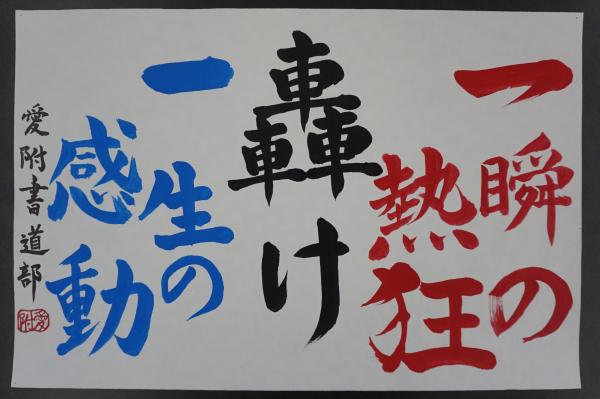 一瞬の
熱狂
轟け
一生の
感動
愛附書道部
愛附